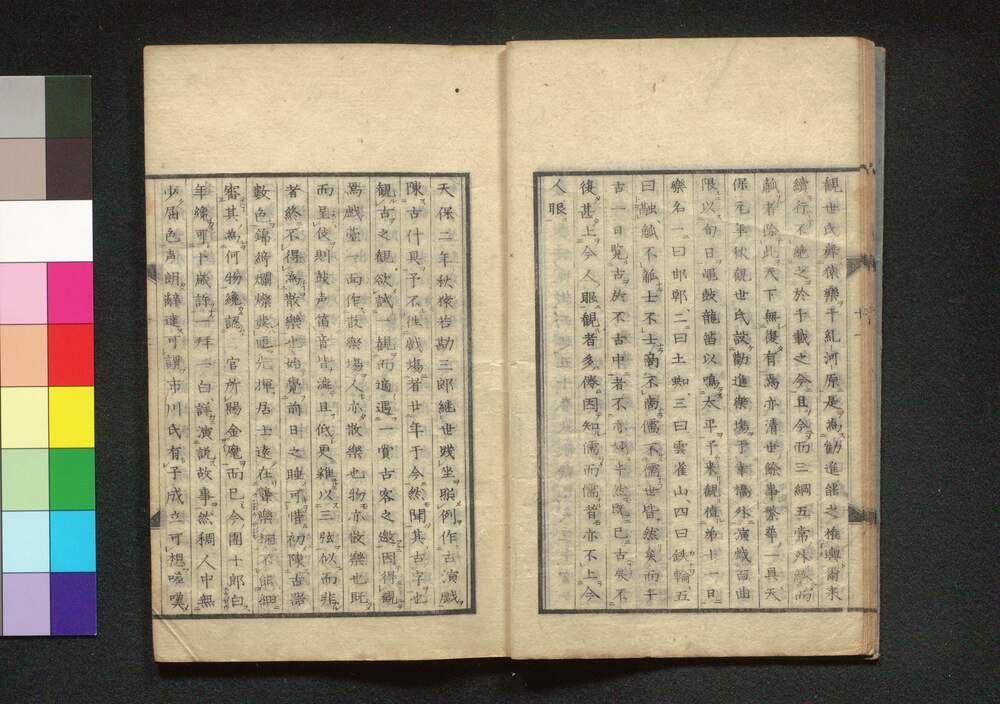 觀世氏奏猿樂于糺河原是為勸進能之権輿爾來
續行不絶之於千載之今且今而三綱五常外
觚者除此天下無復有焉亦清世餘事繁華一具天
保元年秋觀世氏設勸進樂場于幸橋外演戲百曲
限以旬日鼉鼓龍笛以鳴太平予來觀値第十一日
樂名一曰邯鄲二曰土蜘三曰雲雀山四曰鉄輪五
曰融觚不觚士不士商不商儒不儒世皆然矣而千
古一日覽古於不古中者不亦
復甚上今人眼觀者多倦因知儒而儒昔亦不上今
人眼
天保二年秋猿若勘三郎繼世踐坐照例作古演戲
陳古什具予不徃戲場者廿年于今然聞其古字也
觀古之觀欲試一觀而適遇一賞古客之邀因得觀
焉戲臺一面作散樂場人亦散樂也物亦散樂也既
而呈伎則鼓声笛音皆澁且低更雜以三弦似而非
者終不得為散樂也始覺前日之睡可惜初陳古器
數色錦綺爛燦居士遠在不能細
審其為何物纔認官所賜金麾而已今團十郎白
年纔可十歳許一拜一白詳演説故事然稠人中無
少屈色声朗辭達可謂市川氏有子成立可想嗟嘆
十一